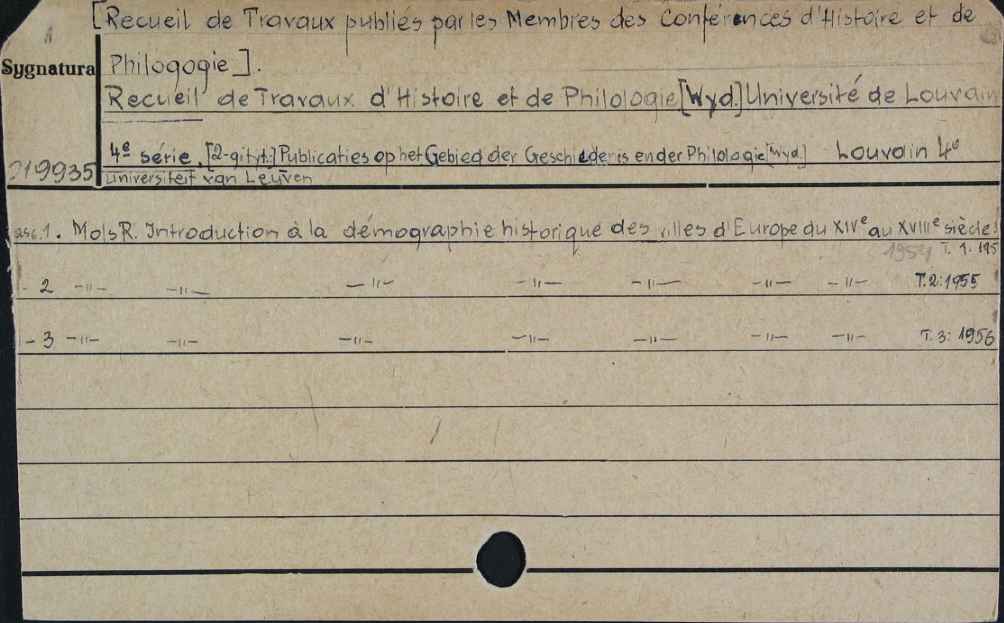 [Recueil de Travaux publiés par les Membres des Conférences d'Histoire et de
Sygnatura
Philogogie].
Recueil de Travaux d'Histoire et de Philologie [Wyd.] Université de Louvain
4e série. [2-gi tyt.] Publicaties op het Gebied der Geschiedenis en der Philologie [Wyd.] Louvain 4o
219935
Universiteit van Leuven
asc. 1. Mols R. Introduction à la démographie historique des villes d'Europe du XIVe au XVIIIe siècle
1954 T. 1. 195
- 2 -"- -"- -"- -"- -"- -"- -"- T. 2: 1955
- 3 -"- -"- -"- -"- -"- -"- -"- T. 3: 1956